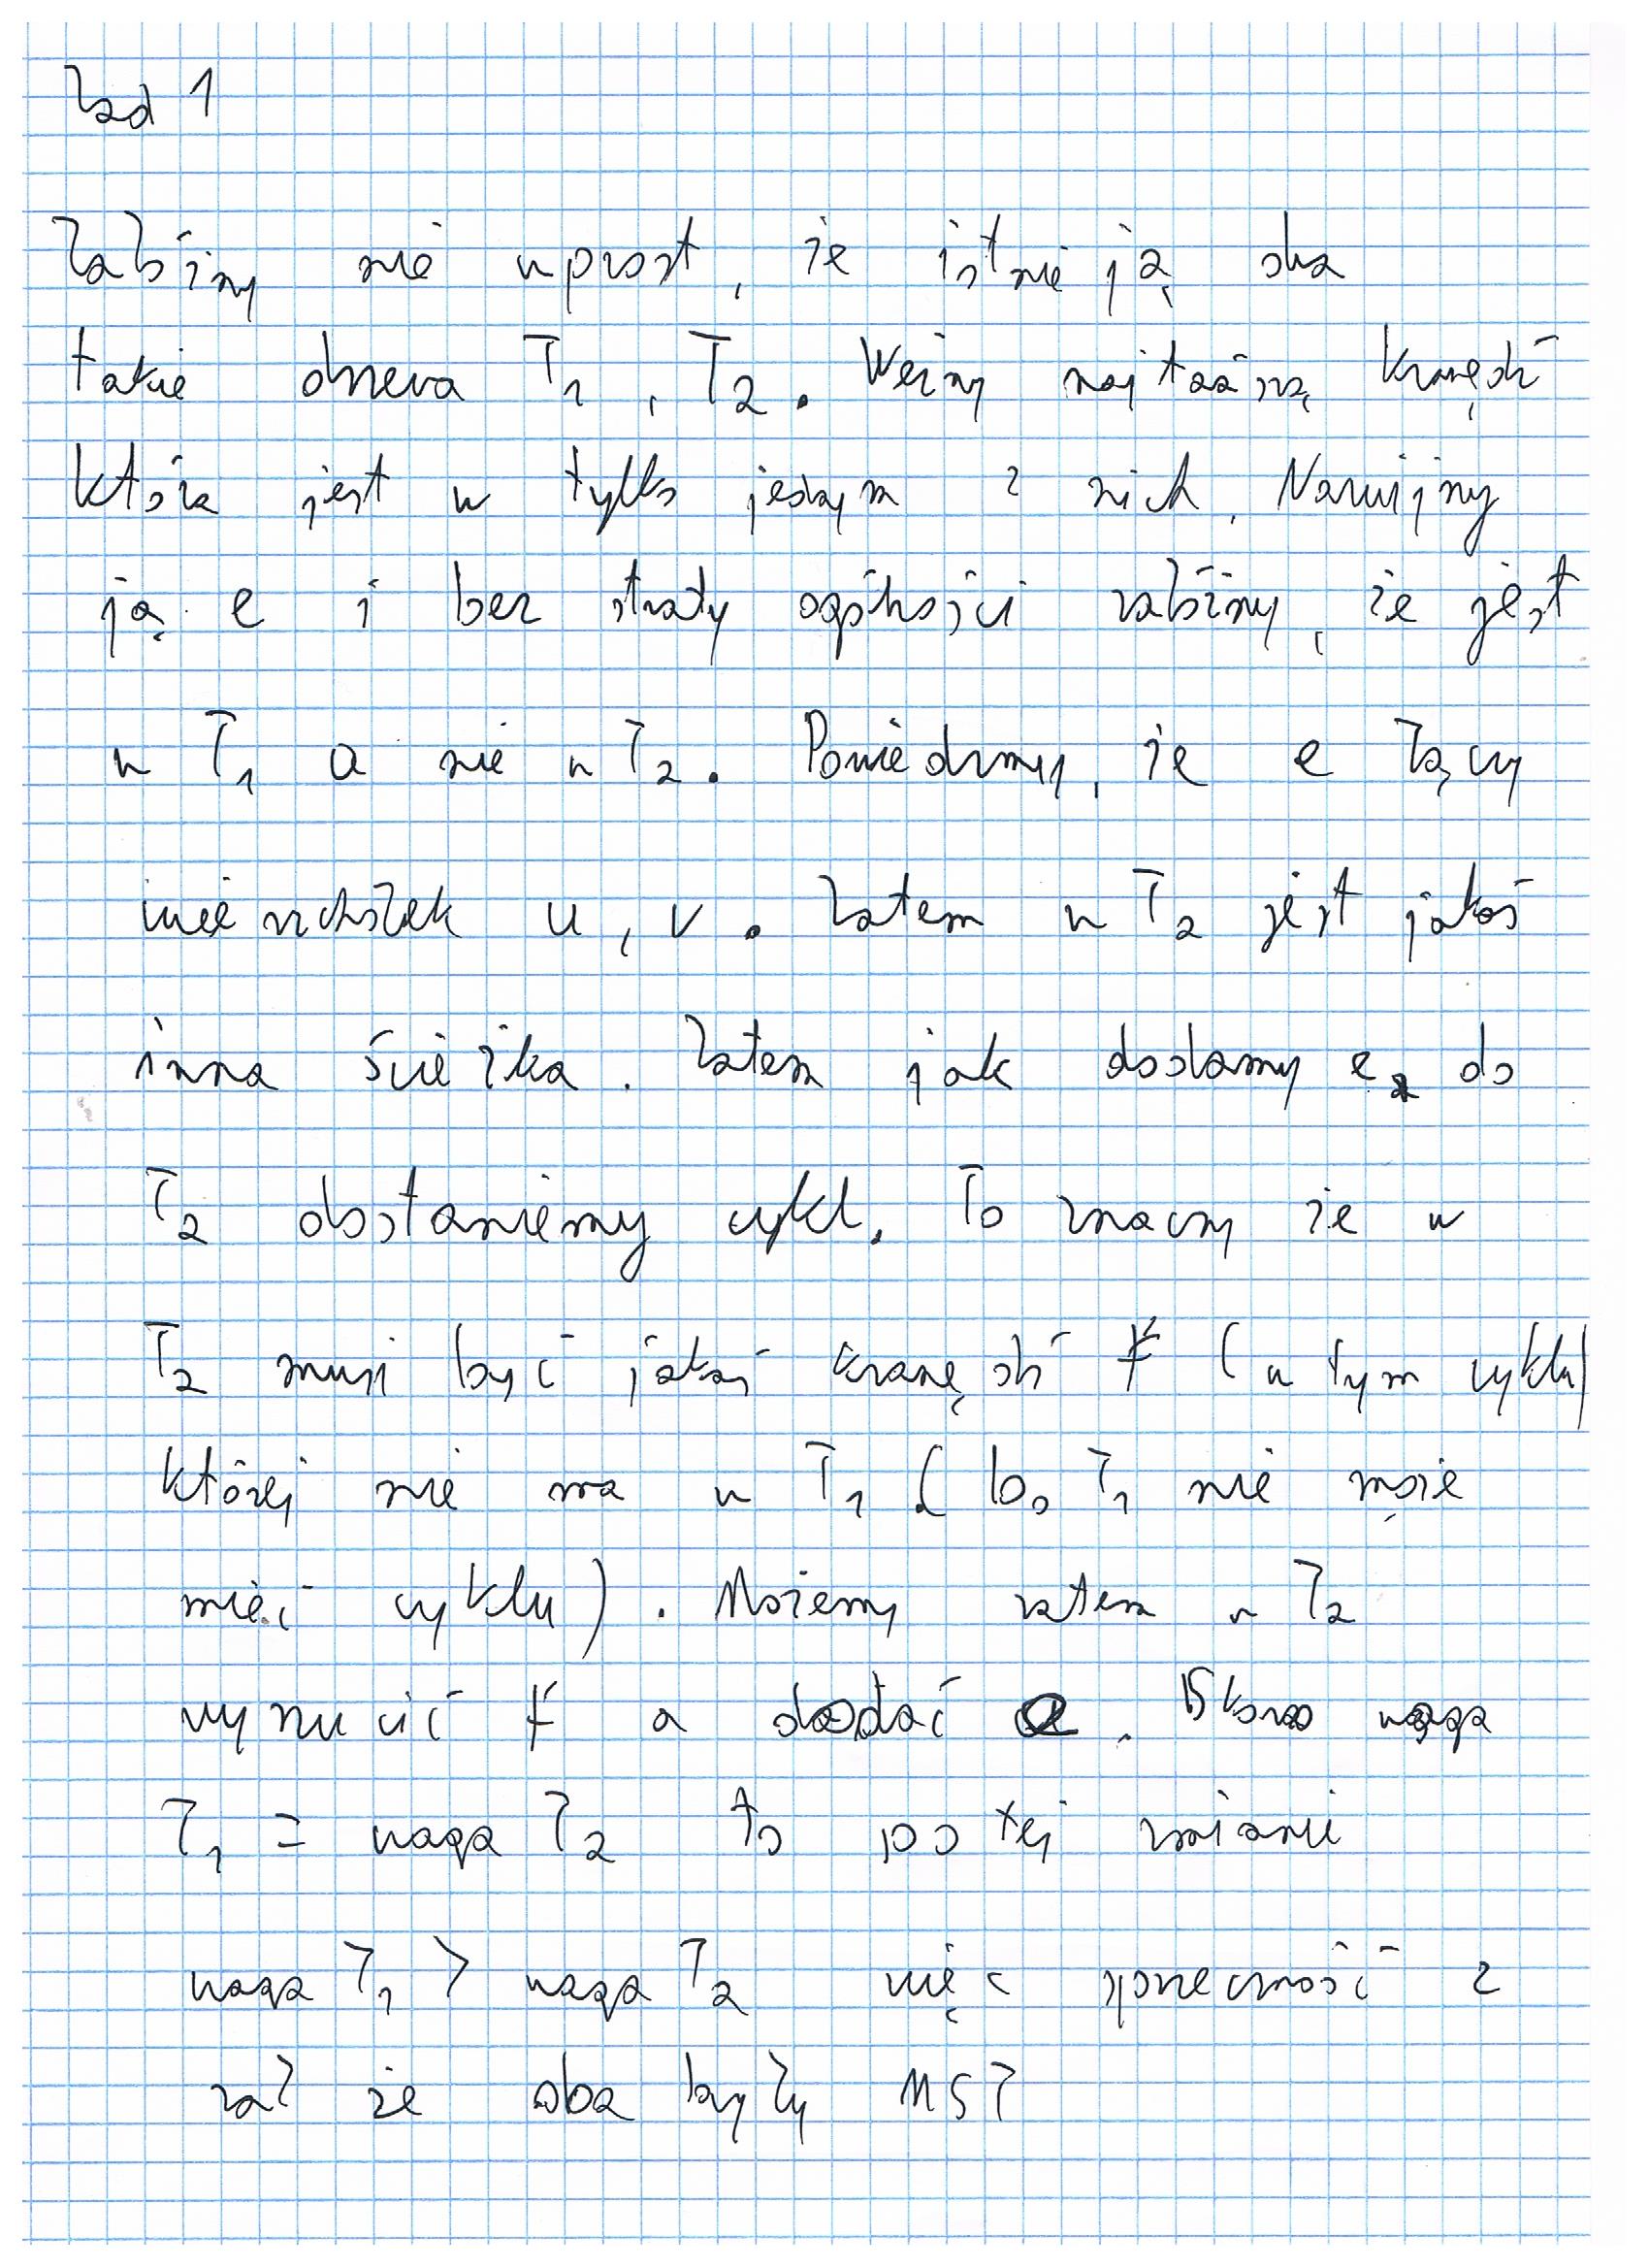 Zad 1
Załóżmy nie wprost, że istnieją dwa
takie drzewa T1, T2. Weźmy najtańszą krawędź
która jest w tylko jednym z nich. Nazwijmy
ją e i bez straty ogólności załóżmy, że jest
w T1 a nie w T2. Powiedzmy, że e łączy
wierzchołek u, v. Zatem w T2 jest jakaś
inna ścieżka. Zatem jak dodamy e do
T2 dostaniemy cykl. To znaczy że w
T2 musi być jakaś krawędź f (w tym cyklu)
której nie ma w T1 (bo T1 nie może
mieć cyklu). Możemy zatem w T2
wyrzucić f a dodać e. Skoro waga
T1 = waga T2 to po tej zmianie
waga T1 > waga T2 więc sprzeczność z
zał że oba były MST